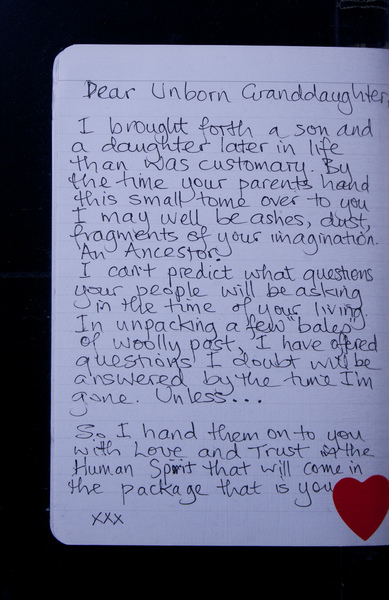 Dear Unborn Granddaughter,
I brought forth a son and
a daughter later in life
than was customary. By
the time your parents hand
this small tome over to you
I may well be ashes, dust,
fragments of your imagination.
An Ancestor.
I can't predict what questions
your people will be asking
in the time of your living.
In unpacking a few "bales"
of woolly past, I have offered
questions I doubt will be
answered by the time I'm
gone. Unless...
So I hand them on to you
with Love and Trust in the
Human Spirit that will come in
the package that is you
xxx